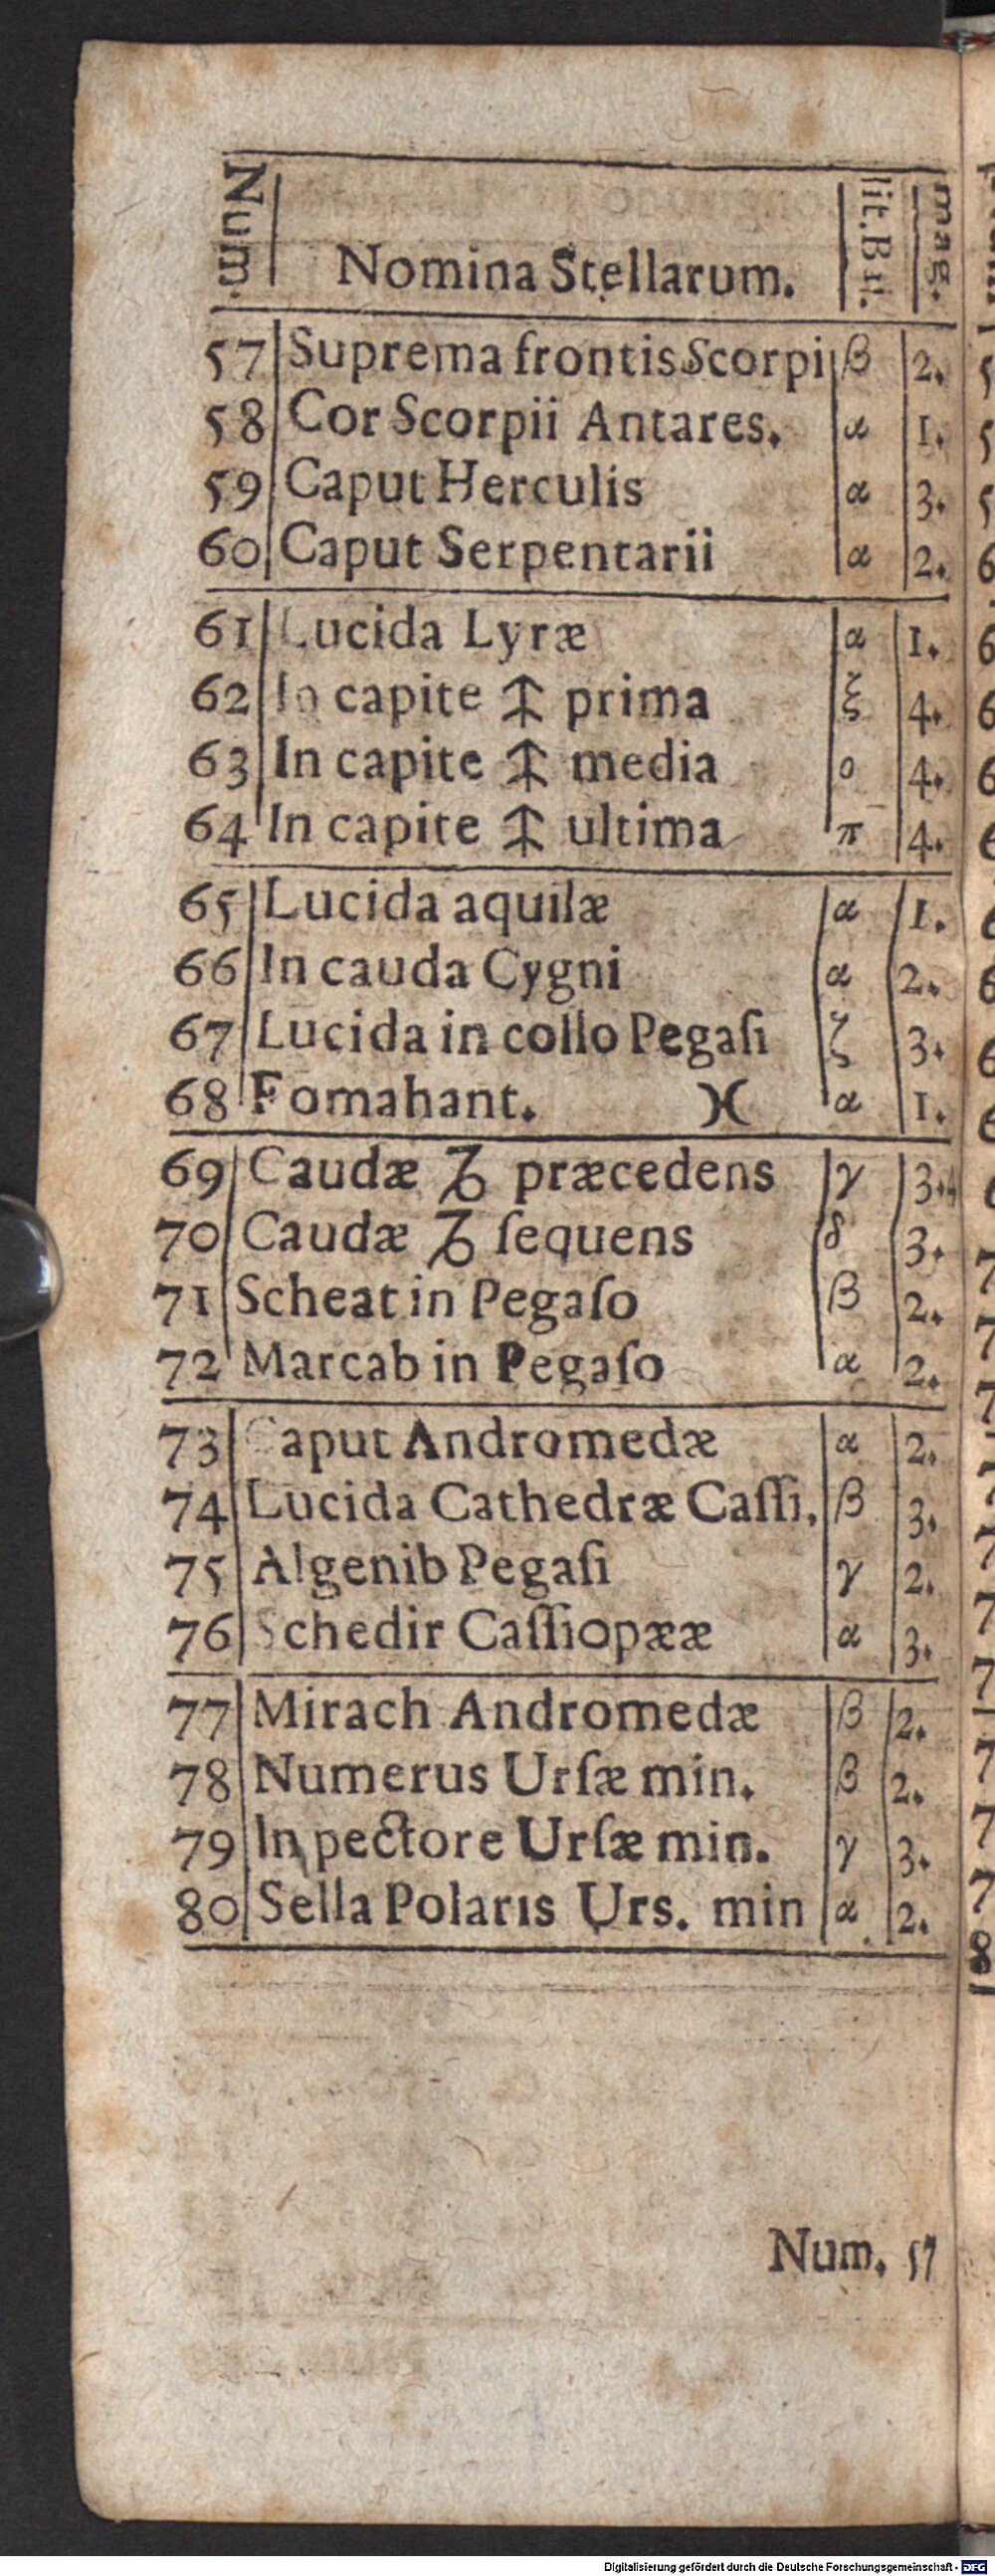 Num. Nomina Stellarum. lit. Bu. mag.
57 Suprema frontis Scorpi β 2.
58 Cor Scorpii Antares. α 1.
59 Caput Herculis α 3.
60 Caput Serpentarii α 2.
61 Lucida Lyræ α 1.
62 In capite ♐ prima ξ 4.
63 In capite ♐ media ο 4.
64 In capite ♐ ultima π 4.
65 Lucida aquilæ α 1.
66 In cauda Cygni α 2.
67 Lucida in collo Pegaſi ζ 3.
68 Fomahant. ♓ α 1.
69 Caudæ ♑ præcedens γ 3.
70 Caudæ ♑ ſequens δ 3.
71 Scheat in Pegaſo β 2.
72 Marcab in Pegaſo α 2.
73 Caput Andromedæ α 2.
74 Lucida Cathedræ Caſſi. β 3.
75 Algenib Pegaſi γ 2.
76 Schedir Caſſiopææ α 3.
77 Mirach Andromedæ β 2.
78 Numerus Urſæ min. β 2.
79 In pectore Urſæ min. γ 3.
80 Sella Polaris Urs. min α 2.
Num. 57
Digitalisierung gefördert durch die Deutsche Forschungsgemeinschaft - DFG